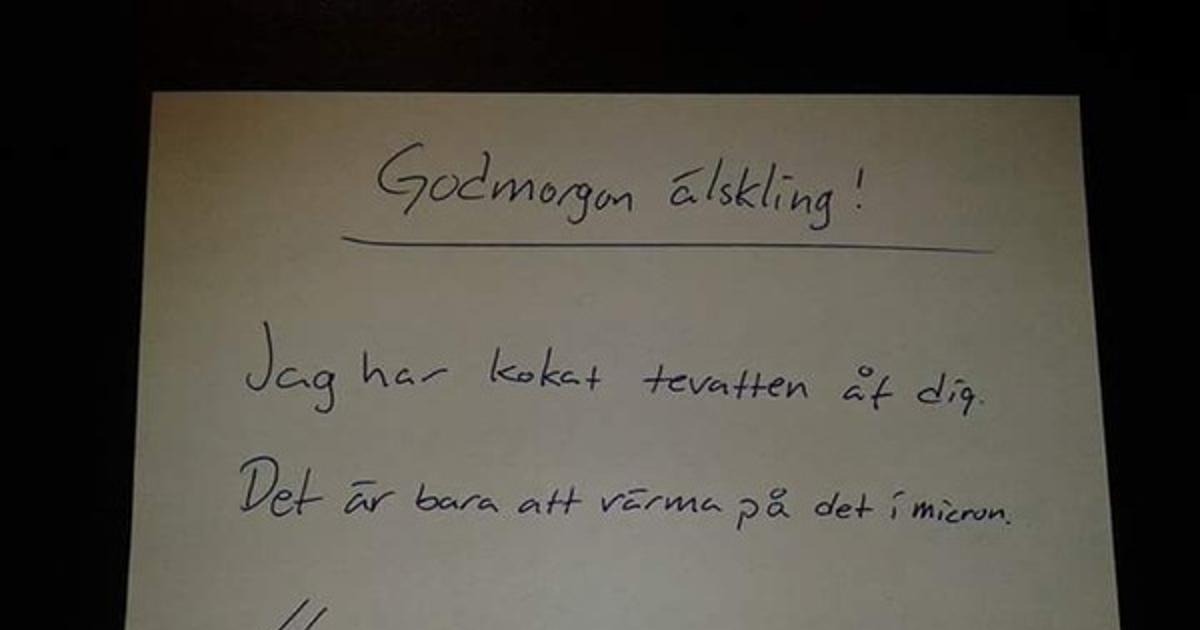 Godmorgon älskling!
Jag har kokat tevatten åt dig.
Det är bara att värma på det i micron.
//